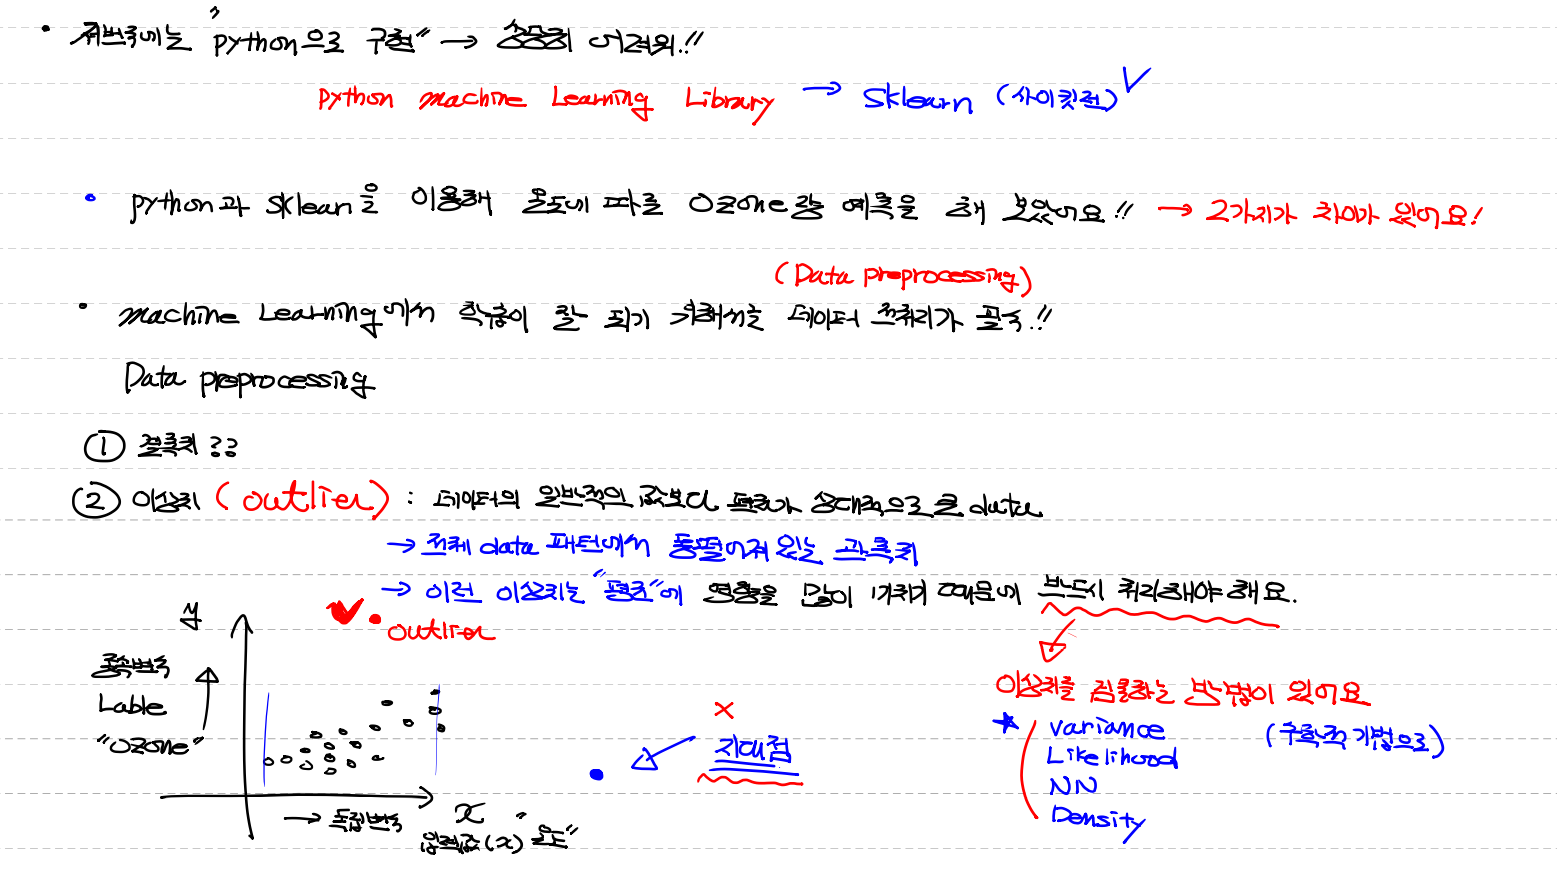 • 저번주에는 "python으로 구현" → 상당히 어려워!!
python machine Learning Library → sklearn (사이킷런)
• python과 sklearn을 이용해 온도에 따른 Ozone량 예측을 해 보았어요!! → 2가지가 차이가 있어요!
(Data preprocessing)
• machine Learning에서 학습이 잘 되기 위해서는 데이터 전처리가 필수!!
Data preprocessing
① 결측치 ??
② 이상치 (outlier) : 데이터의 일반적인 값보다 편차가 상대적으로 큰 data
→ 전체 data 패턴에서 동떨어져 있는 관측치
→ 이런 이상치는 "평균"에 영향을 많이 미치기 때문에 반드시 처리해야 해요.
y
outlier
종속변수
Lable
"Ozone"
→ 독립변수
x
입력값(x) "온도"
지대점
이상치를 검출하는 방법이 있어요
★ variance (수학적 기법으로)
Likelihood
NN
Density